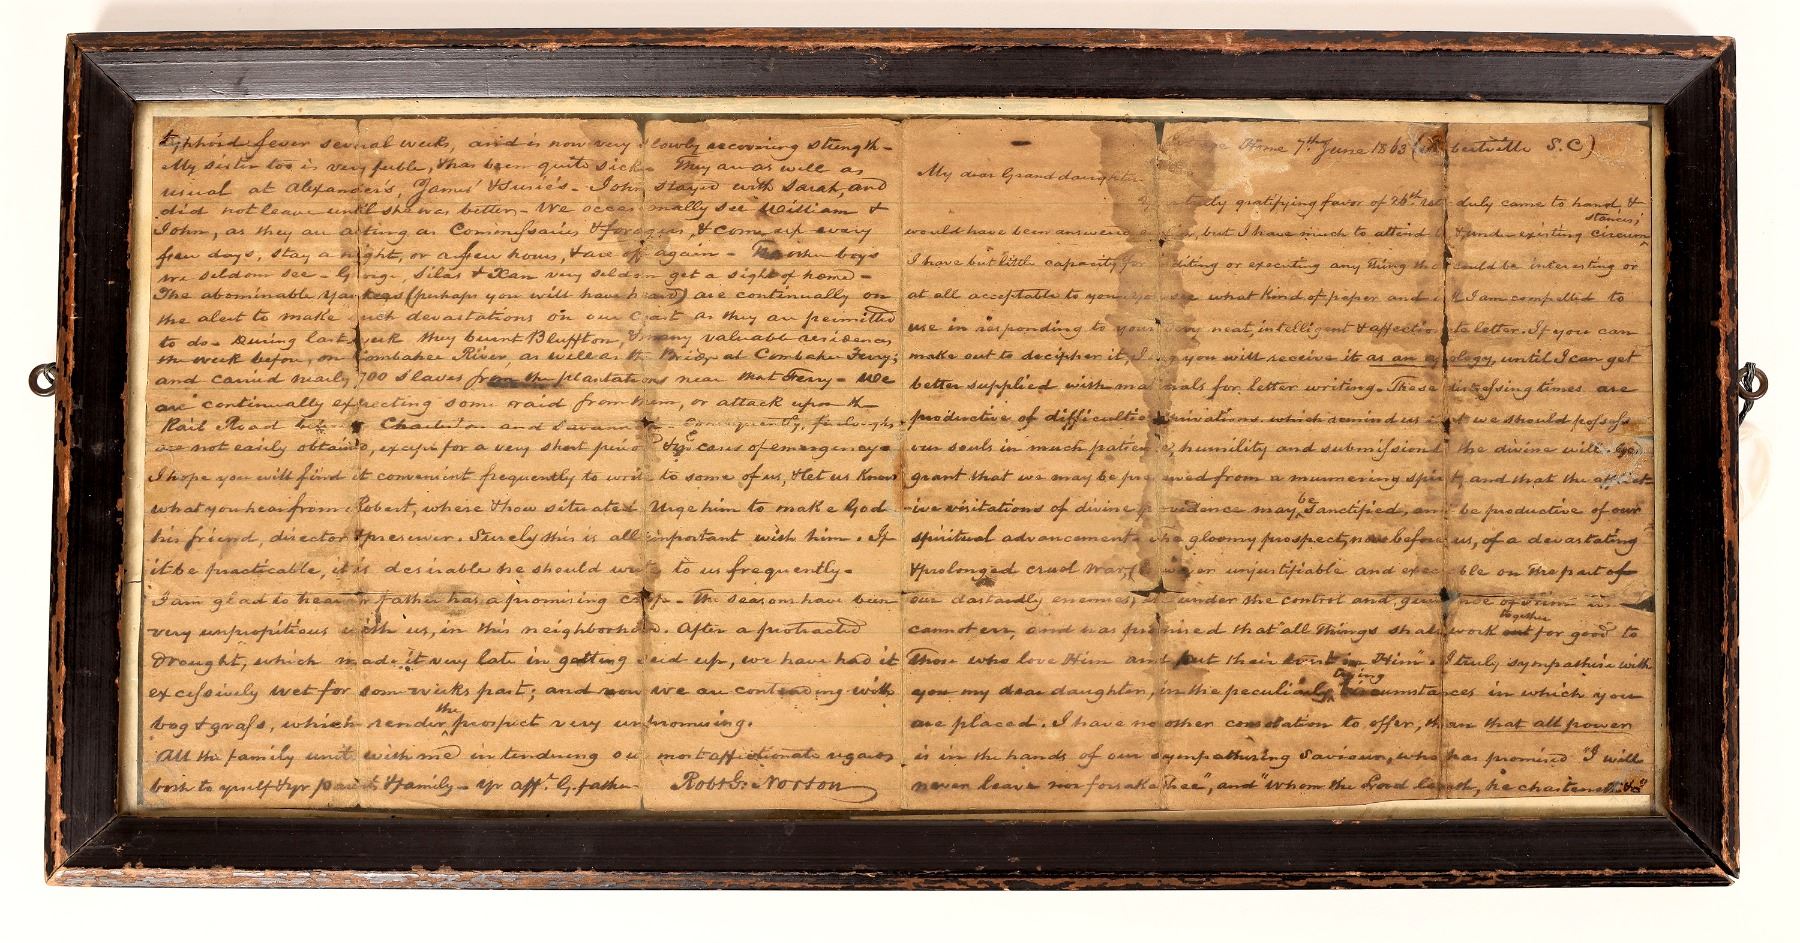 Home 7th June 1863 (Robertville S.C)
My dear Granddaughter
gratifying favor of 26th duly came to hand, &
would have been answered but I have much to attend to & under existing circumstances;
I have but little capacity for editing or executing any thing that could be interesting or
at all acceptable to you. You see what kind of paper and ink I am compelled to
use in responding to your very neat, intelligent & affectionate letter. If you can
make out to decipher it, I beg you will receive it as an apology, until I can get
better supplied with materials for letter writing. These distressing times are
productive of difficulties & privations which remind us that we should possess
our souls in much patience, humility and submission to the divine will. God
grant that we may be preserved from a murmering spirit, and that the afflict-
ive visitations of divine providence may be sanctified, and be productive of our
spiritual advancement. The gloomy prospect, now before us, of a devastating
& prolonged cruel war, (however unjustifiable and execrable on the part of
our dastardly enemies,) is under the control and guidance of Him who
cannot err, and has promised that "all things shall work together for good to
those who love Him and put their trust in Him". I truly sympathise with
you my dear daughter, in the peculiarly trying circumstances in which you
are placed. I have no other consolation to offer, than that all power
is in the hands of our sympathising Saviour, who has promised "I will
never leave nor forsake thee", and "whom the Lord loveth, he chasteneth &c"
typhoid fever several weeks, and is now very slowly recovering strength-
My sister too is very feeble, & has been quite sick. They are as well as
usual at Alexander's, James' & Susie's. John stayed with Sarah, and
did not leave until she was better. We occasionally see William &
John, as they are acting as Commissaries & foragers, & come up every
few days, stay a night, or a few hours, & are off again - The other boys
we seldom see - George, Silas & Xan very seldom get a sight of home -
The abominable Yankees (perhaps you will have heard) are continually on
the alert to make such devastations on our coast as they are permitted
to do. During last week they burnt Bluffton, & many valuable residences
the week before, on Combahee River, as well as the Bridge at Combahee Ferry;
and carried nearly 700 slaves from the plantations near that Ferry - We
are continually expecting some raid from them, or attack upon the
Rail Road Charleston and Savannah Consequently, furloughs
are not easily obtained, except for a very short period & cases of emergency-
I hope you will find it convenient frequently to write to some of us, & let us know
what you hear from Robert, where & how situated. Urge him to make God
his friend, director & preserver. Surely this is all important with him. If
it be practicable, it is desirable he should write to us frequently-
I am glad to hear yr father has a promising crop. The seasons have been
very unpropitious with us, in this neighborhood. After a protracted
drought, which made it very late in getting seed up, we have had it
excessively wet for some weeks past; and now we are contending with
bog & grass, which render the prospect very unpromising.
All the family unite with me in tendering our most affectionate regards
both to yrself & yr parents & family - Yr afft. G. father Robt G. Norton